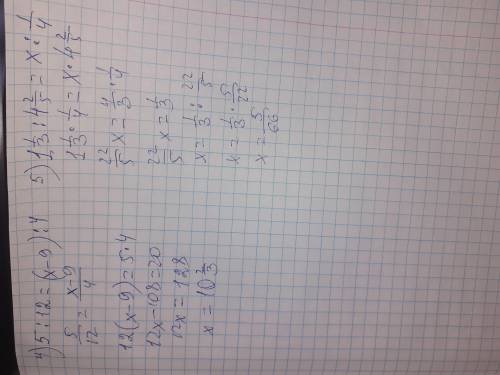 4) 5 : 12 = (x-9) : 4
5/12 = x-9/4
12(x-9) = 5·4
12x-108=20
12x = 128
x = 10 2/3
5) 1 1/3 : 4 2/5 = x : 1/4
1 1/3 · 1/4 = x · 4 2/5
22/5 x = 4/3 · 1/4
22/5 x = 1/3
x = 1/3 : 22/5
x = 1/3 · 5/22
x = 5/66